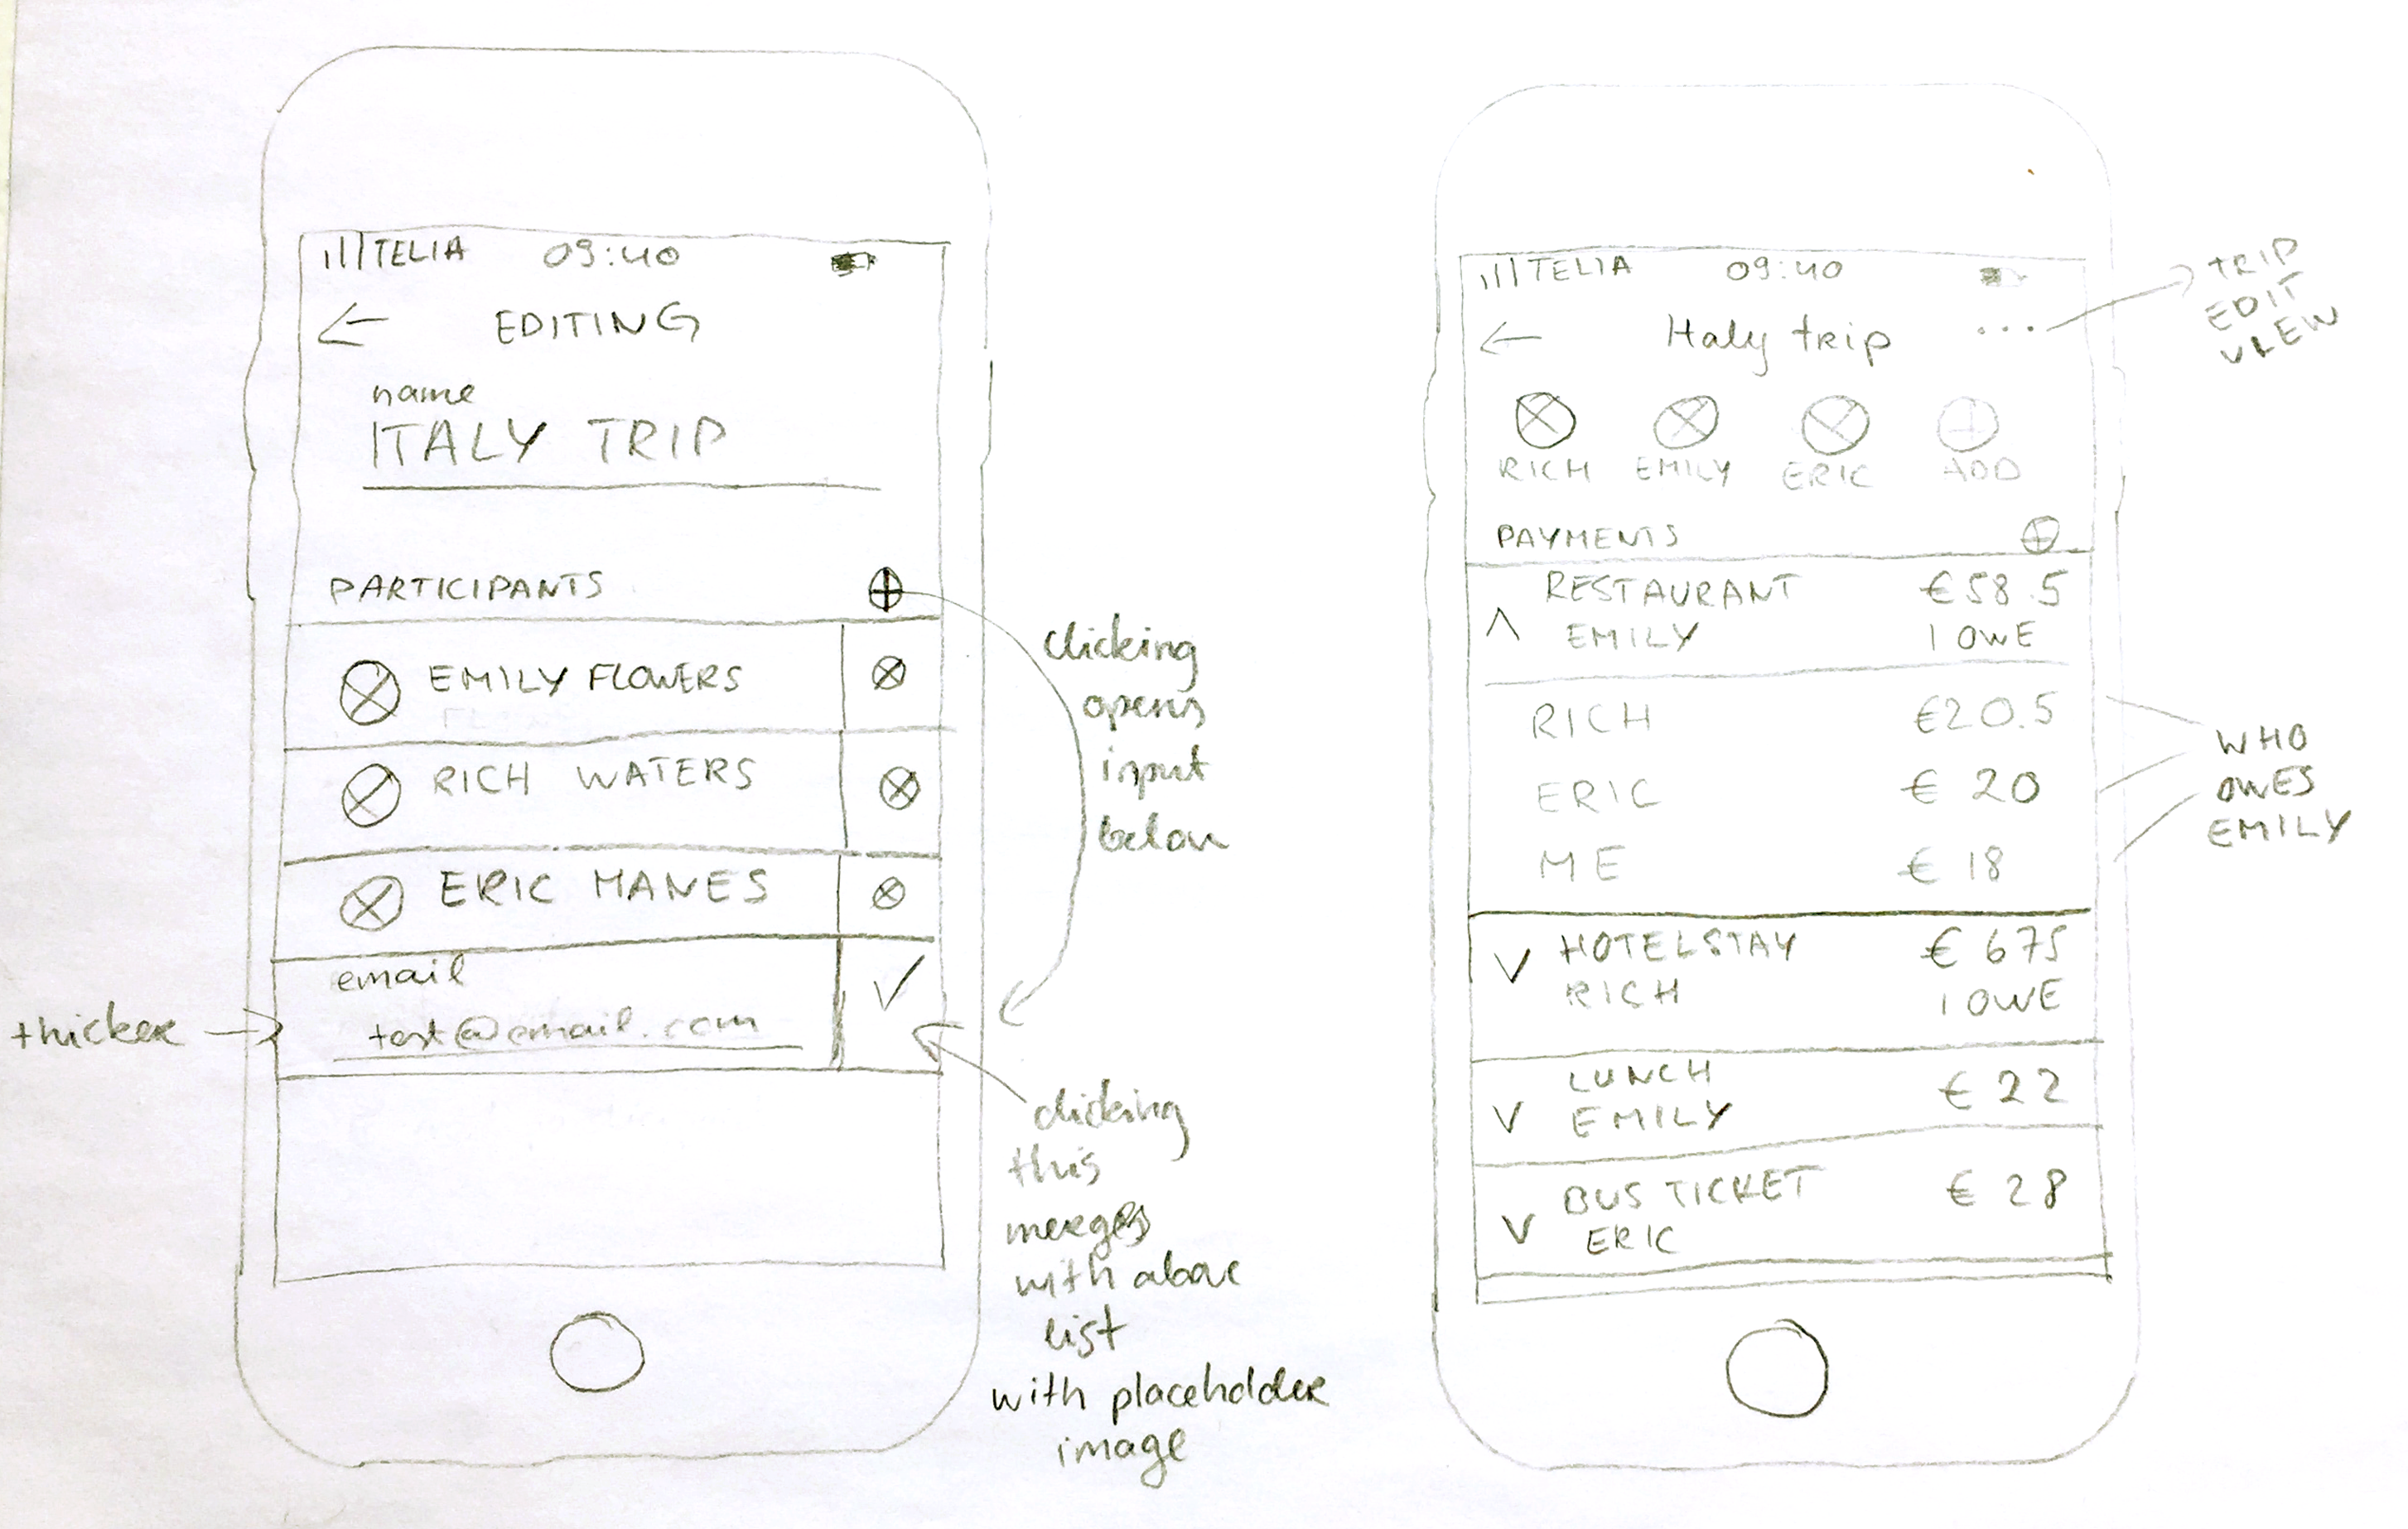 TELIA 09:40
EDITING
name
ITALY TRIP
PARTICIPANTS
EMILY FLOWERS
RICH WATERS
ERIC MANES
email
test@email.com
thicker
clicking
opens
input
below
clicking
this
merges
with above
list
with placeholder
image
TELIA 09:40
Italy trip ...
TRIP
EDIT
VIEW
RICH EMILY ERIC ADD
PAYMENTS
RESTAURANT €58.5
EMILY I OWE
RICH €20.5
ERIC € 20
ME € 18
WHO
OWES
EMILY
HOTELSTAY € 675
RICH I OWE
LUNCH € 22
EMILY
BUS TICKET € 28
ERIC